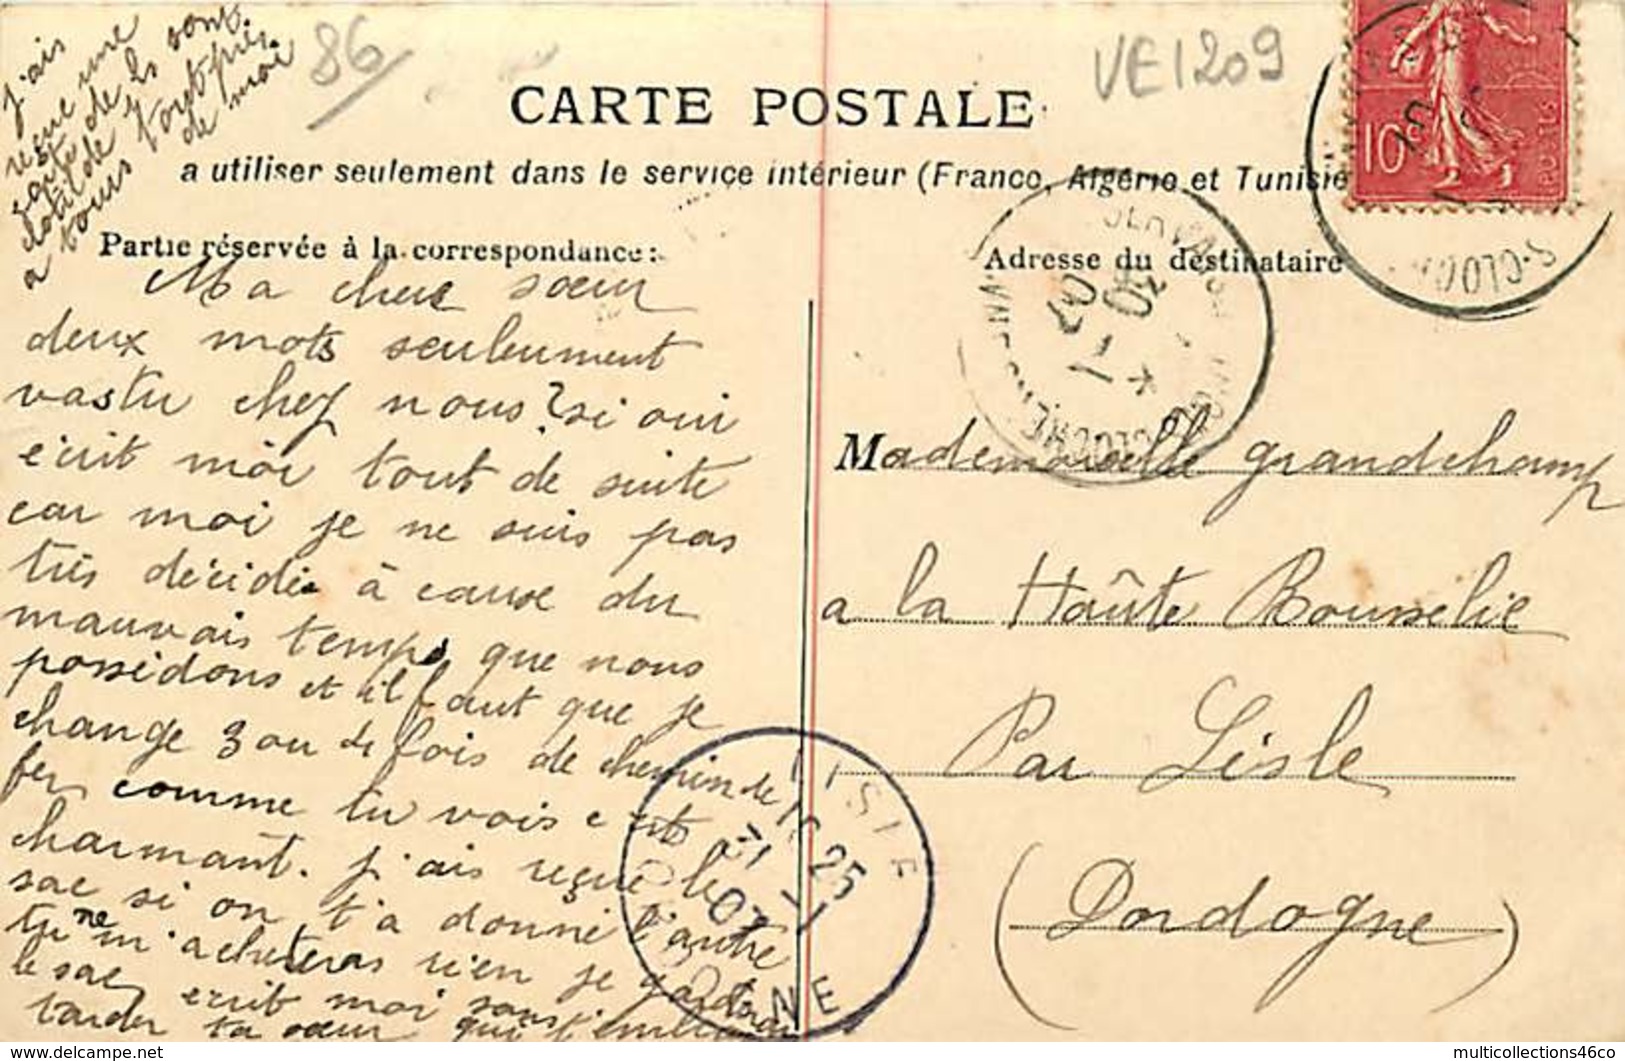 j'ais
reçue une
carte de
clotilde ils sont
a tous tout près
de moi
86
VE1209
CARTE POSTALE
a utiliser seulement dans le service intérieur (France, Algérie et Tunisie
Partie réservée à la correspondance:
Adresse du destinataire
10c
Ma cher sœur
deux mots seuleument
vastu chez nous? si oui
écrit moi tout de suite
car moi je ne suis pas
très décidée à cause du
mauvais temps que nous
possédons et il faut que je
change 3 ou 4 fois de chemin de
fer comme tu vois c'est
charmant. j'ais reçue le
sac si on t'a donné l'autre
tu ne m'acheteras rien je garderai
le sac, écrit moi sans
tarder ta sœur qui t'embrasse
Mademoiselle grandchamp
a la Haûte Rousselie
Par Lisle
(Dordogne)
LISLE
16 25
31 - 1
07
DORDOGNE
30
1
07
multicollections46co